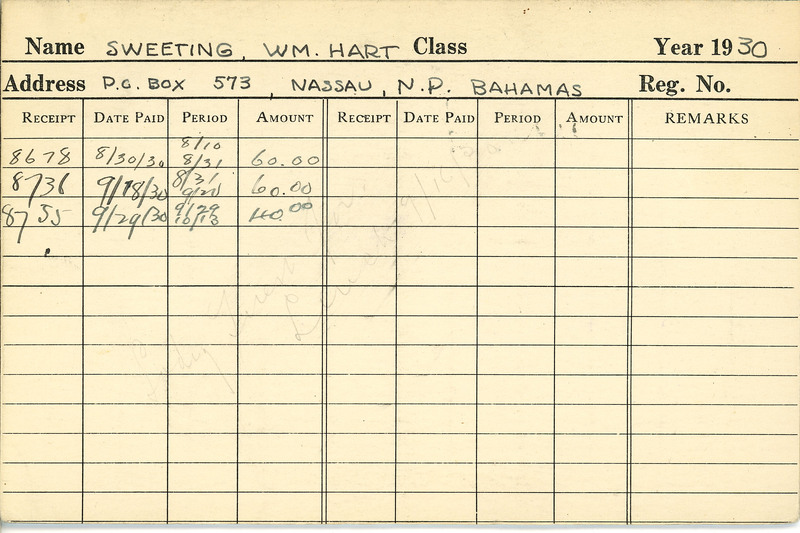 Name SWEETING, WM. HART Class Year 1930
Address P.O. BOX 573, NASSAU, N.P. BAHAMAS Reg. No.
RECEIPT DATE PAID PERIOD AMOUNT RECEIPT DATE PAID PERIOD AMOUNT REMARKS
8/10
8678 8/30/30 8/31 60.00
8/31
8736 9/18/30 9/20 60.00
9/29
8755 9/29/30 10/13 40.00